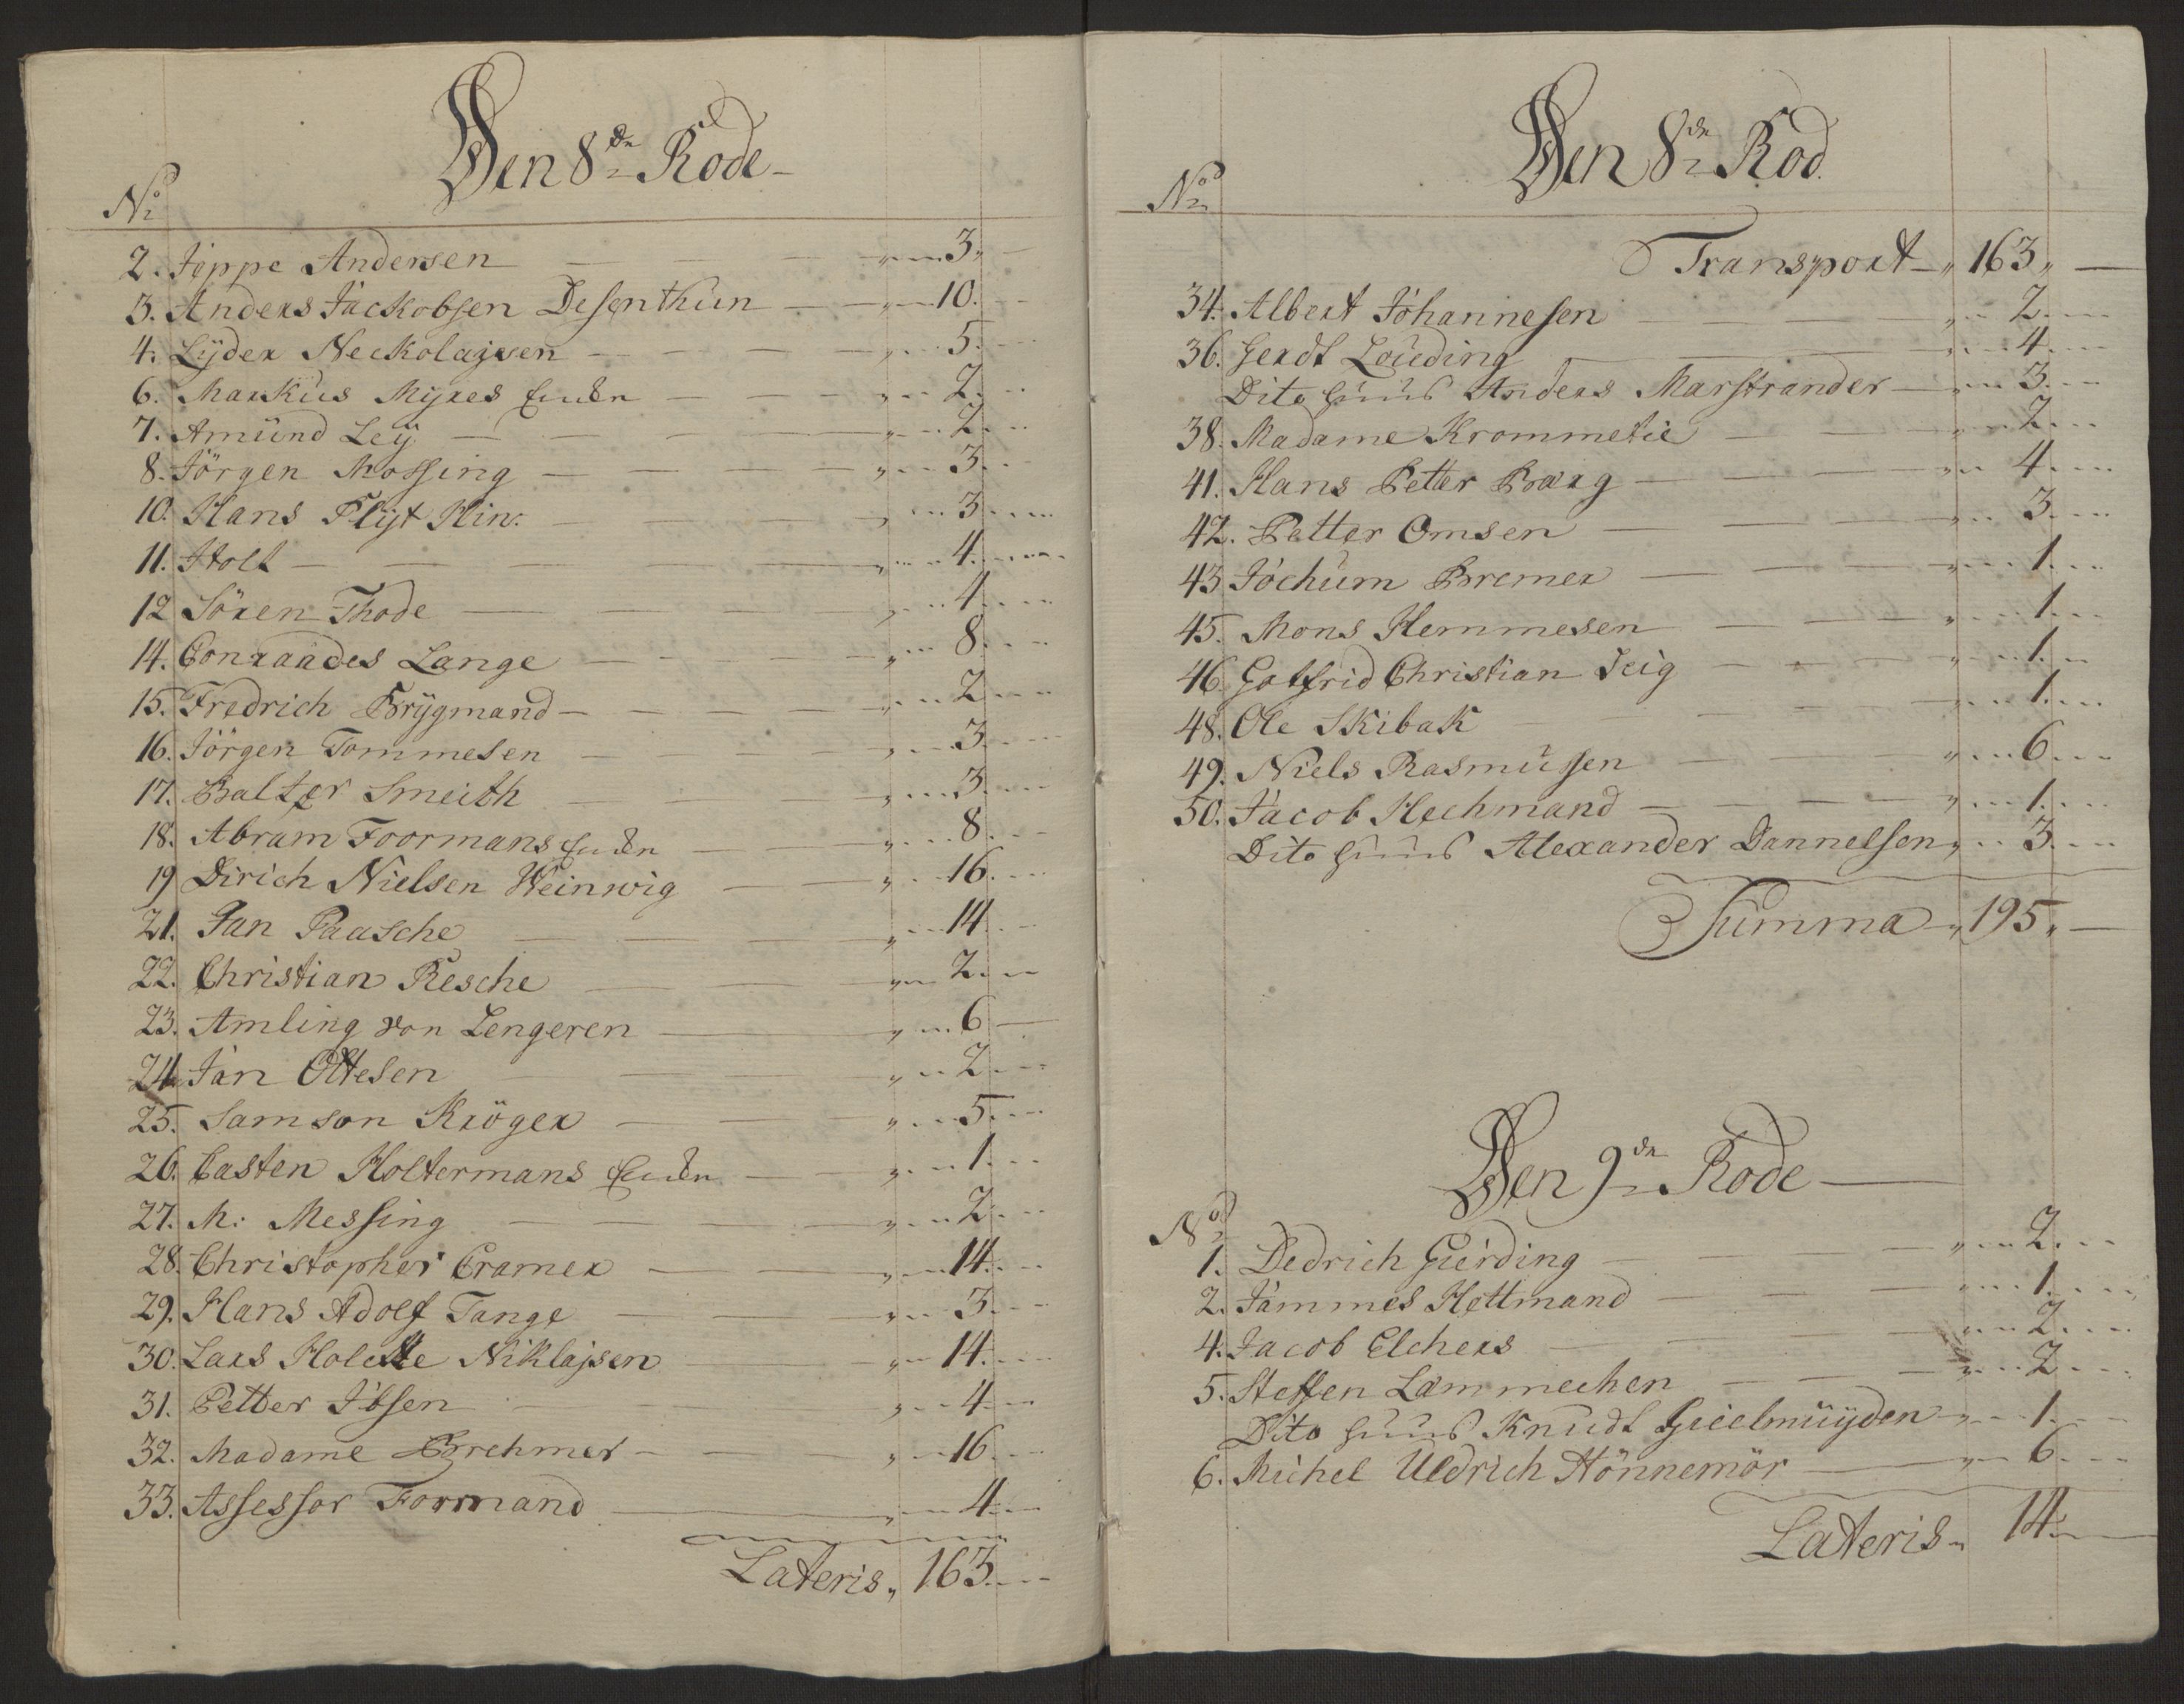 Den 8de Rode
No
2. Jeppe Andersen 3
3. Anders Jackobsen Desenthun 10.
4. Lyder Neckolajsen 5.
6. Markus Myres Encken 2.
7. Amund Ley 2
8. Jörgen Mossing 3.
10. Hans Flyt Hin: 3
11. Holt 4.
12 Sören Thode 4
14. Conraades Lange 8.
15. Fredrich Brygmand 2
16. Jörgen Tommesen 3
17. Baltzer Smeith 3.
18. Abram Foormans Encken 8
19 Dirich Nielsen Weinwig 16.
21. Jan Paasche 14.
22. Christian Resche 2.
23. Amling von Lengeren 6
24. Jan Ottesen 2
25. Samson Kröger 5.
26. Casten Holtermans Encken 1
27. M: Messing 2
28. Christopher Cramer 14.
29. Hans Adolf Tange 3
30. Lars Holcke Niklajsen 14.
31. Petter Ibsen 4
32. Madame Brehmer 16
33. Assessor Formand 4
Lateris 163
Den 8de Rod
No
Transport 163
34. Albert Johannesen 2.
36. Gerdt Louding 4
Dito huus Anders Marstrander 3.
38. Madame Krommetie 2
41. Hans Petter Barg 4
42. Petter Omsen 3.
43 Jochum Bremer 1.
45. Mons Hemmesen 1.
46. Gotfrid Christian Teig 1.
48. Ole Skibak 1.
49. Niels Rasmussen 6
50. Jacob Hechmand 1.
Dito huus Alexander Dannelsen 3.
Summa 195
Den 9de Rode
No
1. Dedrich Gierding 2.
2. Jammes Hettmand 1.
4. Jacob Elchers 2
5. Steffen Lammechen 2
Dito huus Knudt Gieelmuyden 1
6. Michel Uldrich Hönnemör 6
Lateris 14.